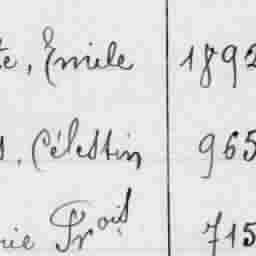 te, Emile 1892
s, Célestin 965
rie Frois 715